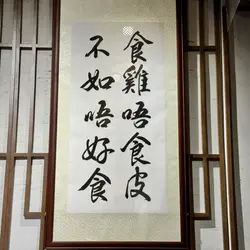 食雞唔食皮
不如唔好食